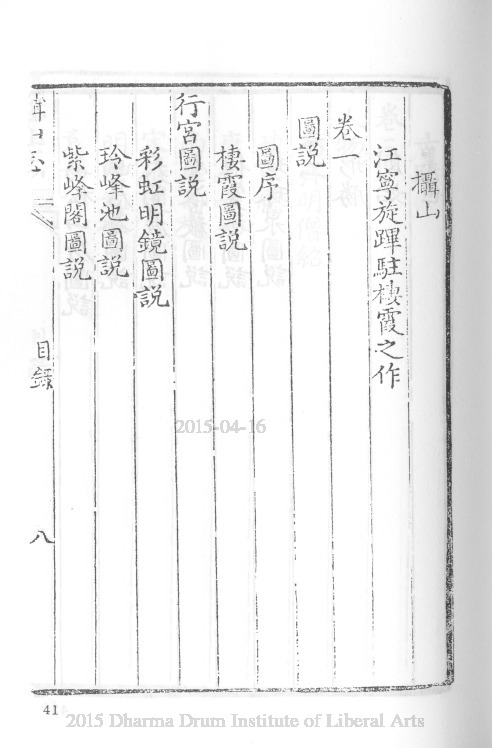 攝山
江寧旋蹕駐棲霞之作
卷一
圖說
圖序
棲霞圖說
行宮圖說
彩虹明鏡圖說
玲峰池圖說
紫峰閣圖說
目錄
八
2015-04-16
41
2015 Dharma Drum Institute of Liberal Arts